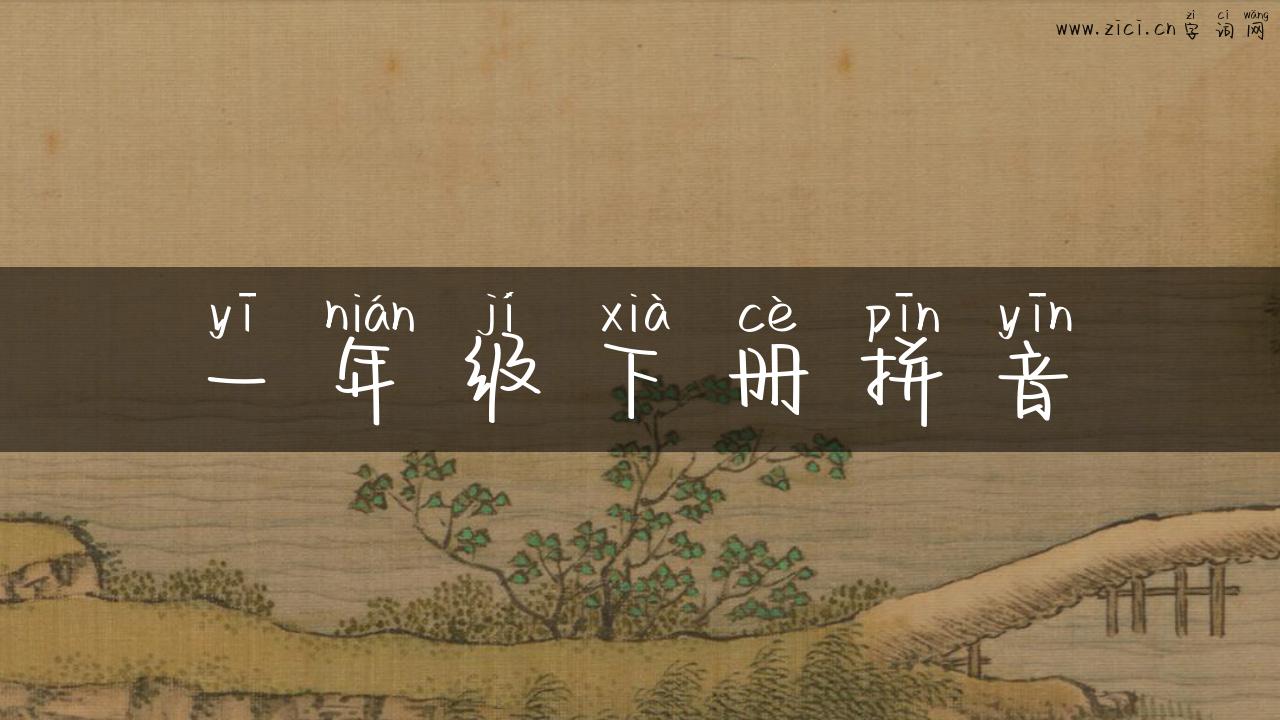 zì cí wǎng
www.zici.cn 字词网
yī nián jí xià cè pīn yīn
一年级下册拼音